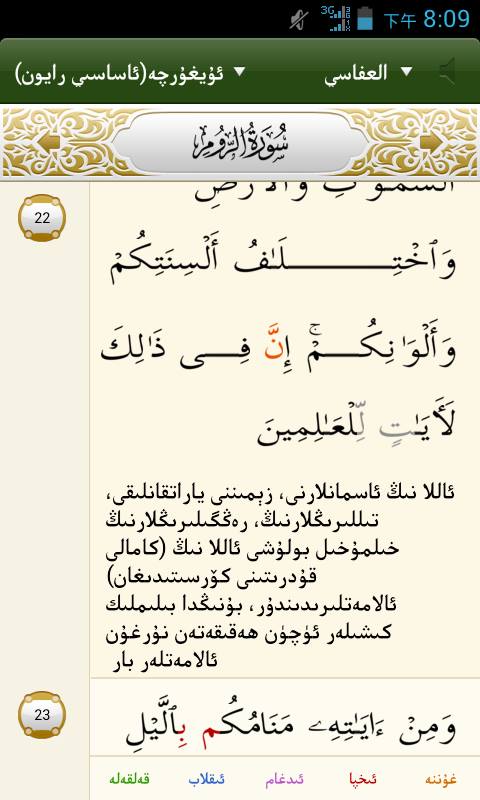 3G 下午 8:09
ئۇيغۇرچە(ئاساسىي رايون) العفاسي
سُورَةُ الرُّومِ
22
ٱلسَّمَٰوَٰتِ وَٱلْأَرْضِ
وَٱخْتِلَٰفُ أَلْسِنَتِكُمْ
وَأَلْوَٰنِكُمْ ۚ إِنَّ فِى ذَٰلِكَ
لَأَيَٰتٍ لِّلْعَٰلِمِينَ
ئاللا نىڭ ئاسمانلارنى، زېمىننى ياراتقانلىقى،
تىللىرىڭلارنىڭ، رەڭگىلىرىڭلارنىڭ
خىلمۇخىل بولۇشى ئاللا نىڭ (كامالى
قۇدرىتىنى كۆرسىتىدىغان)
ئالامەتلىرىدىندۇر، بۇنىڭدا بىلىملىك
كىشىلەر ئۈچۈن ھەقىقەتەن نۇرغۇن
ئالامەتلەر بار
23
وَمِنْ ءَايَٰتِهِۦ مَنَامُكُم بِٱلَّيْلِ
غۇننە ئىخپا ئىدغام ئىقلاب قەلقەلە